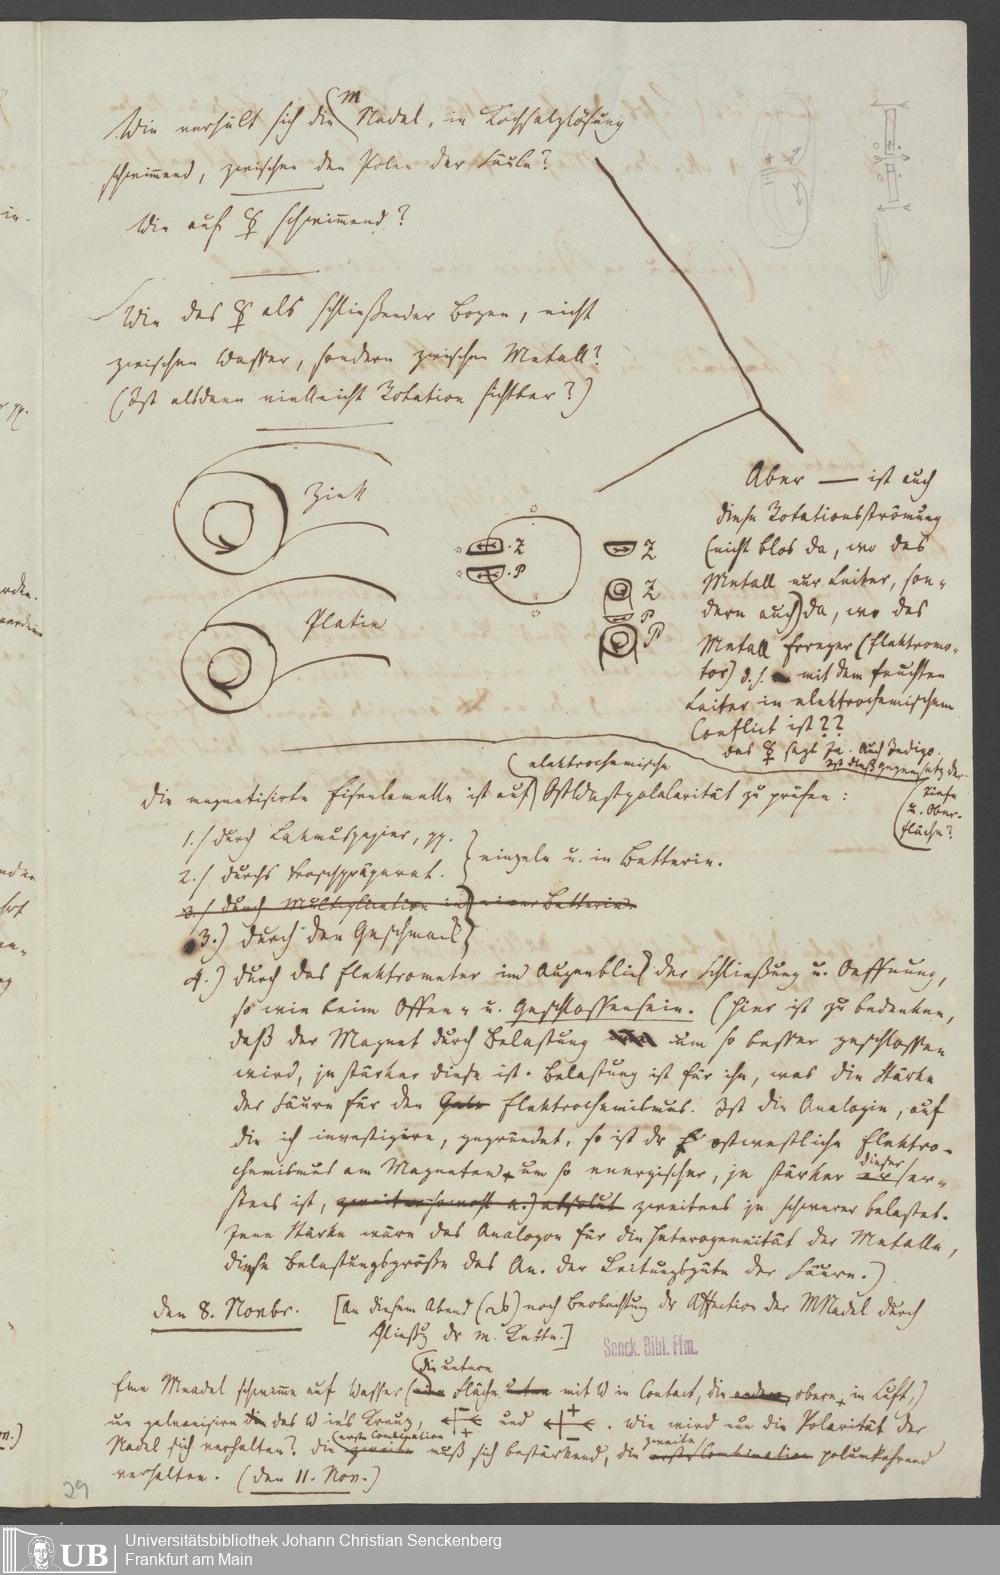 Wie verhält sich die m Nadel, in Kochsalzlösung
schwimmend, zwischen den Polen der Säule?
Wie auf ☿ schwimmend?
Wie das ☿ als schließender Bogen, nicht
zwischen Wasser, sondern zwischen Metall?
(Ist alsdann vielleicht Rotation sichtbar?)
Zink
Platin
Z
P
Z
Z
P
P
Aber — ist auch
diese Rotationsströmung
(nicht blos da, wo das
Metall nur Leiter, son-
dern auch) da, wo das
Metall Erreger (Elektromo-
tor) d. h. mit dem feuchten
Leiter in elektrochemischem
Conflict ist??
das ☿ sagt Ja. Auch Indigo.
Ist dieß Gegensatz der
Tiefe
u. Ober-
fläche?
(elektrochemische
Die magnetisirte Eisenlamelle ist auf OstWestpolalarität zu prüfen:
1./ durch Lakmuspapier, pp.
2./ durchs Froschpräparat.
einzeln u. in Batterie.
3./ durch Multiplication in einer Batterie.
3.) durch den Geschmack
4.) durch das Elektrometer im Augenblick der Schließung u. Oeffnung,
so wie beim Offen- u. Geschlossensein. (Hier ist zu bedenken,
daß der Magnet durch Belastung um so besser geschlossen
wird, je stärker diese ist. Belastung ist für ihn, was die Stärke
der Säure für den Elektrochemismus. Ist die Analogie, auf
die ich investigire, gegründet, so ist dr ostwestliche Elektro-
chemismus am Magneten um so energischer, je stärker dieser er-
stens ist, zweitens je schwerer belastet.
Jene Stärke wäre das Analogon für die Heterogeneität der Metalle,
diese Belastungsgröße das An. der Leitungsgüte der Säure.)
den 8. Novbr. [An diesem Abend noch Beobachtung dr Affection der MNadel durch
Schließg dr m. Kette.]
Senck. Bibl. Ffm.
die untere
Eine Mnadel schwimme auf Wasser ( Fläche mit W in Contact, die obere in Luft,)
un galvanisire das W in's Kreuz, − + und + − . Wie wird nun die Polarität der
erste Combination
zweite
Nadel sich verhalten? die muß sich bestärkend, die polumkehrend
verhalten. (den 11. Nov.)
29
UB
Universitätsbibliothek Johann Christian Senckenberg
Frankfurt am Main